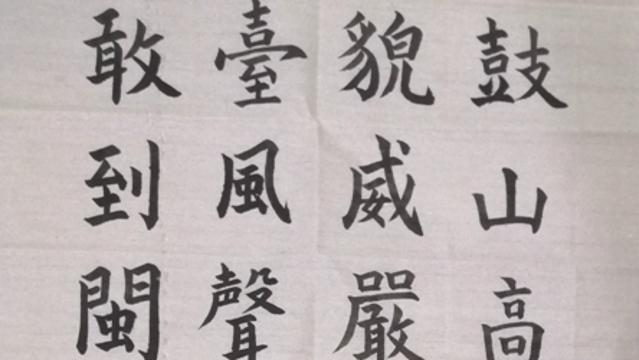 鼓山高
貌威嚴
臺風聲
敢到閩